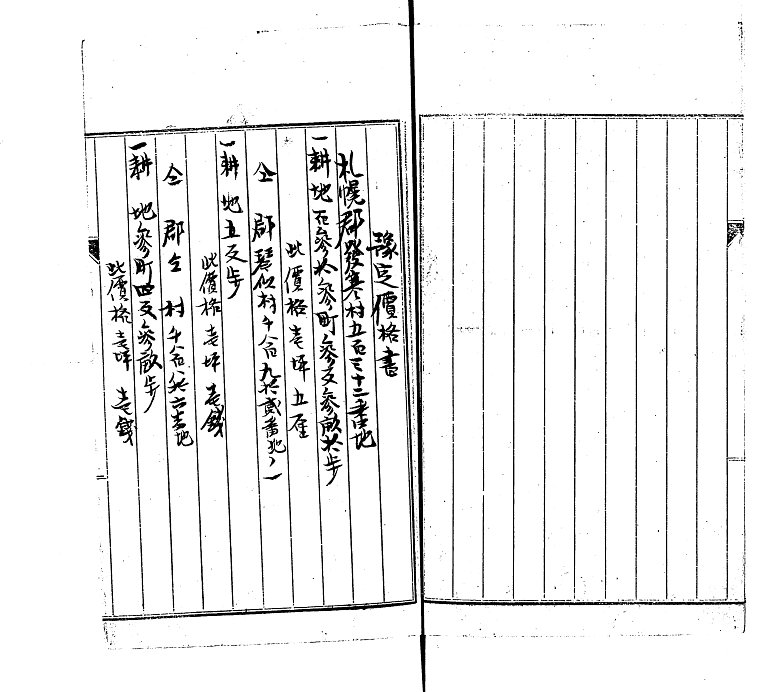 豫定價格書
札幌郡發寒村五百三十二番地
一耕地百參拾參町參反參畝拾歩
此價格壱坪五厘
仝郡琴似村千八百九拾貳番地ノ一
一耕地五反歩
此價格壱坪壱錢
仝郡仝村千八百八拾六番地
一耕地參町四反參畝歩
此價格壱坪壱錢